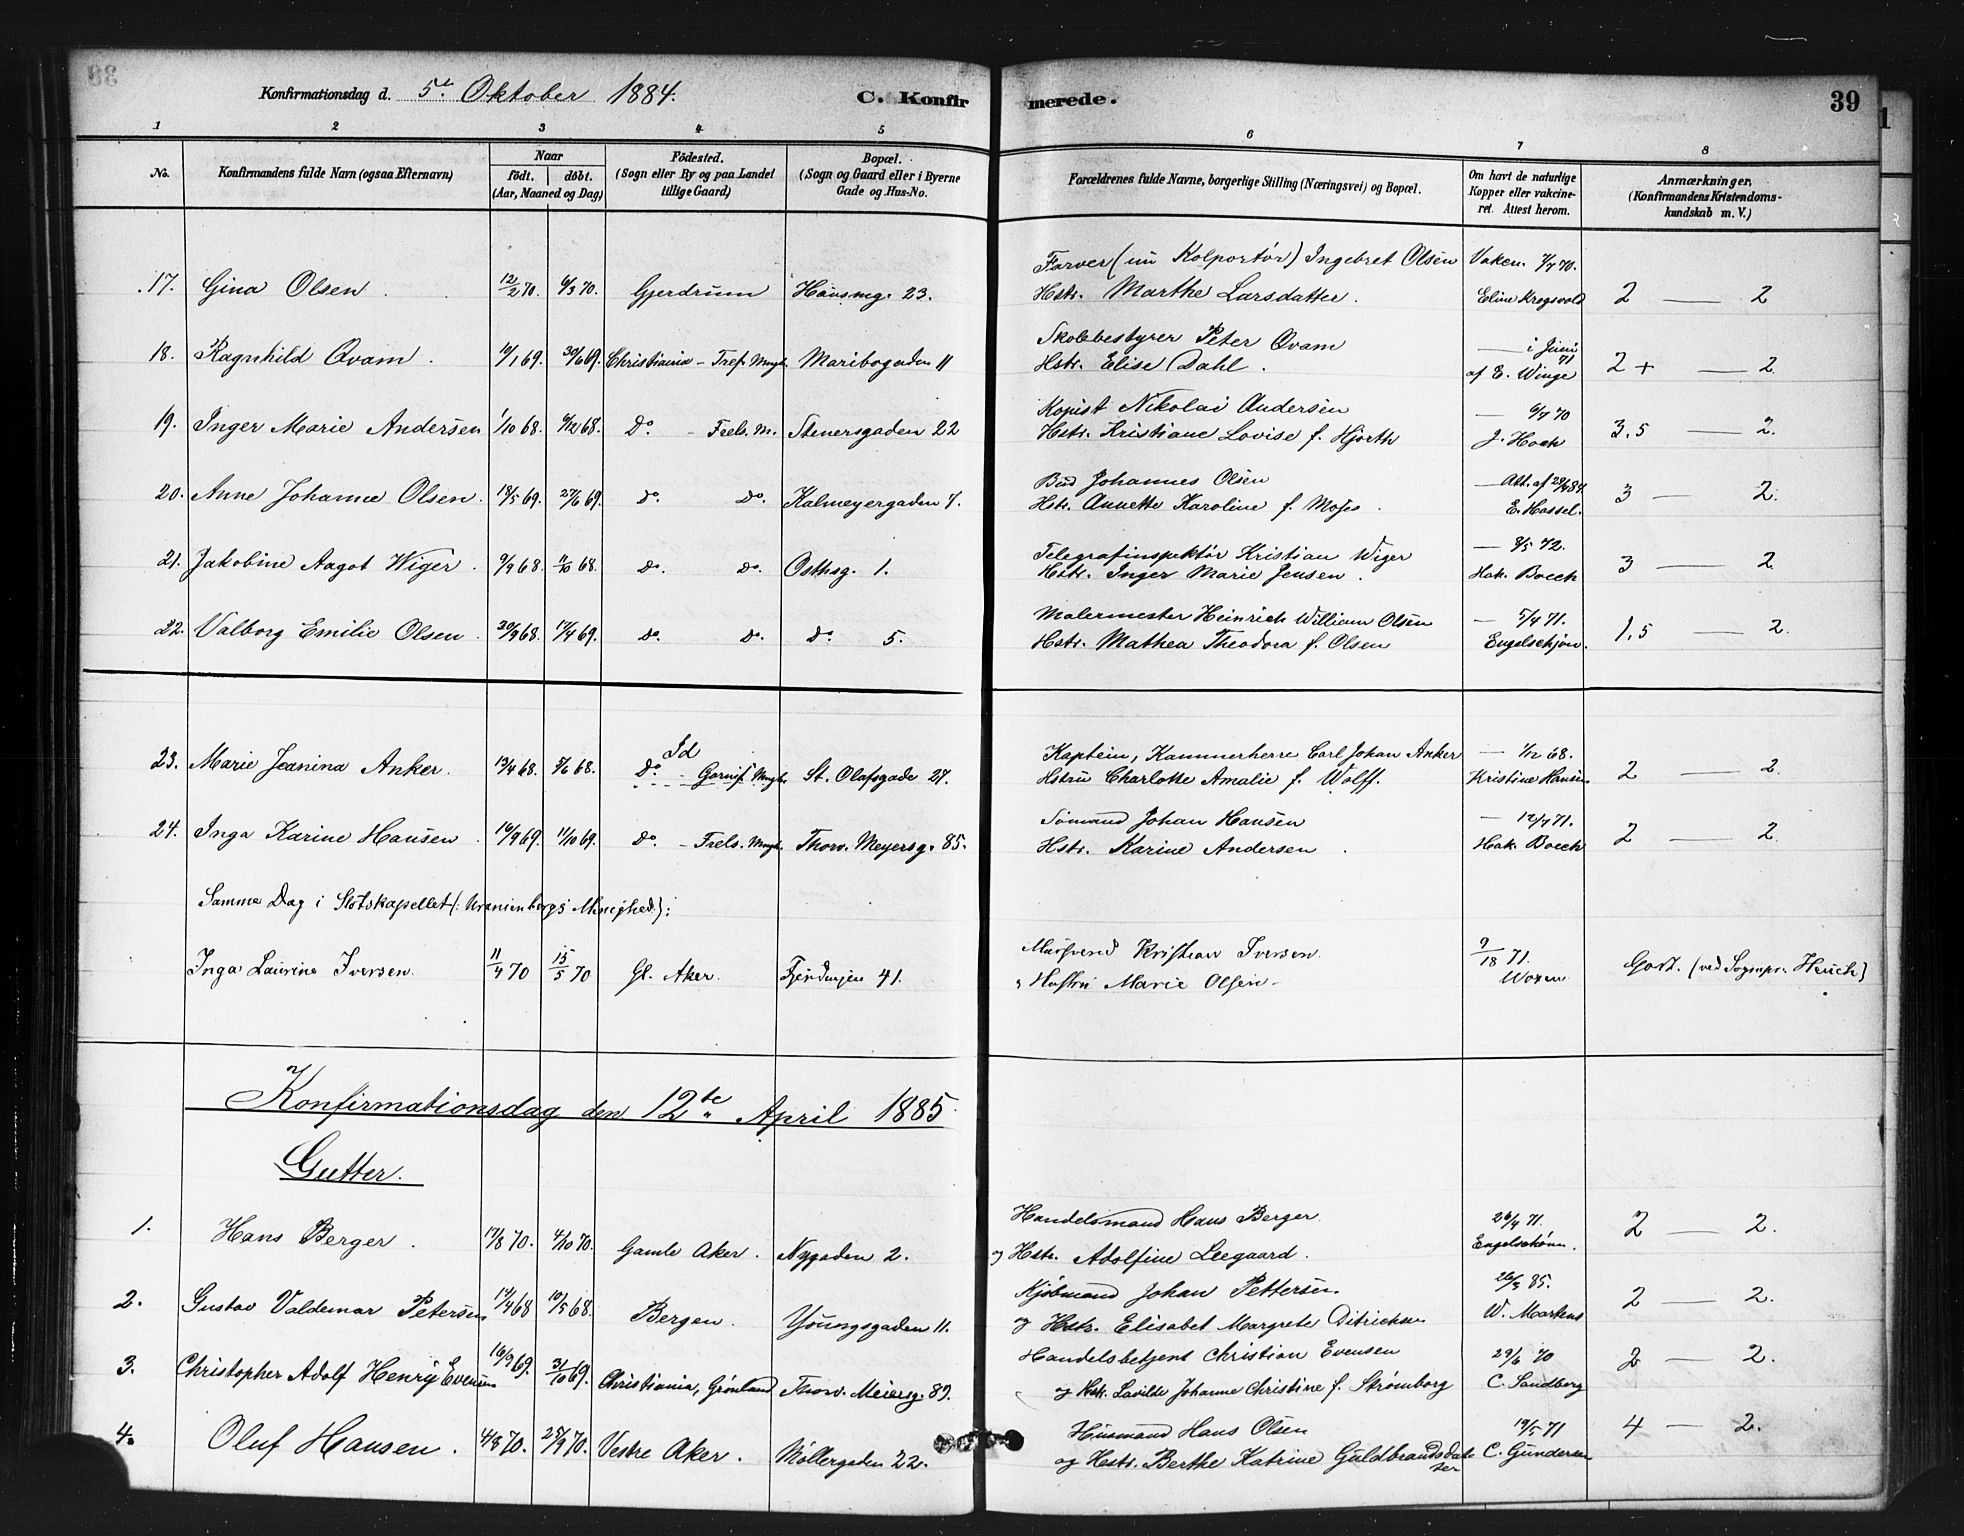 Konfirmationsdag d. 5te Oktober 1884.
C. Konfirmerede.
39
1 2 3 4 5 6 7 8
No.
Konfirmandens fulde Navn (ogsaa Efternavn)
Naar
födt. döbt.
(Aar, Maaned og Dag)
Födested.
(Sogn eller By og paa Landet
tillige Gaard)
Bopæl.
(Sogn og Gaard eller i Byerne
Gade og Hus-No.
Forældrenes fulde Navne, borgerlige Stilling (Næringsvei) og Bopæl.
Om havt de naturlige
Kopper eller vakcine-
ret. Attest herom.
Anmærkninger.
(Konfirmandens Kristendoms-
kundskab m. V.)
17. Gina Olsen 12/2 70. 6/3 70. Gjerdrum Hausmg. 23.
Farver (nu Kolportör) Ingebret Olsen Vakcn. 7/7 70.
Hstr. Marthe Larsdatter. Eline Krogsvold 2 — 2
18. Ragnhild Qvam. 10/1 69. 30/6 69. Christiania - Tref. Mngh. Maribogaden 11
Skolebestyrer Peter Qvam — i Juni 71
Hstr. Elise Dahl. af E. Winge 2+ — 2
19. Inger Marie Andersen 1/10 68. 6/12 68. Do. - Frels. M. Stenersgaden 22
Kopist Nikolai Andersen — 6/7 70
Hstr. Kristiane Lovise f. Hjorth J. Hoch 3,5 — 2.
20. Anne Johanne Olsen. 18/5 69. 27/6 69. Do. Do. Kalmeyergaden 7.
Bud Johannes Olsen — Att. af 29/9 84.
Hstr. Annette Karoline f. Moses. E. Hassel. 3 — 2.
21. Jakobine Aagot Wiger. 9/9 68. 11/10 68. Do. Do. Osthsg. 1.
Telegrafinspektör Kristian Wiger — 8/5 72.
Hstr. Inger Marie Jensen. Hak. Boeck 3 — 2
22. Valborg Emilie Olsen. 20/9 68. 17/4 69. Do. Do. Do. 5.
Malermester Heinrich William Olsen — 5/4 71.
Hstr. Mathea Theodora f. Olsen Engelschjøn. 1,5 — 2.
23. Marie Jeanina Anker. 19/4 68. 3/6 68. Id
Do. - Garnis. Mngh. St. Olafsgade 27.
Kaptein, Kammerherre Carl Johan Anker — 1/12 68.
Hstru Charlotte Amalie f. Wolff. Kristine Hansen 2 — 2.
24. Inga Karine Hansen. 16/9 69. 11/10 69. Do - Frels. Mngh. Thorv. Meyersg. 85.
Sömand Johan Hansen — 12/7 71.
Hstr. Karine Andersen. Hak. Boeck 2 — 2
Samme Dag i Slotskapellet (: Uranienborgs Menighed):
Inga Laurine Iversen. 11/4 70 15/5 70 Gl. Aker. Fjerdingen 41.
Mursvend Kristian Iversen. 9/18 71.
Hustru Marie Olsen - Woxen Godt. (ved Sognepr. Heuch)
Konfirmationsdag den 12te April 1885.
Gutter.
1. Hans Berger. 17/8 70. 4/10 70. Gamle Aker. Nygaden 2.
Handelsmand Hans Berger 26/4 71.
og Hstr. Adolfine Leegaard. Engelschønn. 2 — 2.
2. Gustav Valdemar Petersen 14/4 68 10/5 68. Bergen. Youngsgaden 11.
Kjøbmand Johan Pettersen 26/3 85.
og Hstr. Elisabet Margrete Ditrichsen W. Martens 2 — 2.
3. Christopher Adolf Henry Evensen 16/9 69. 31/10 69. Christiania, Grønland Thorv. Meiersg. 89.
Handelsbetjent Christian Evensen 29/6 70
og Hstr. Lavilde Johanne Christine f. Strømborg C. Sandberg 2 — 2.
4. Oluf Hansen. 4/8 70. 25/9 70. Vestre Aker. Møllergaden 22.
Husmand Hans Olsen 19/5 71
og Hstr. Berthe Katrine Guldbrandsdatter C. Gundersen 4 — 2.